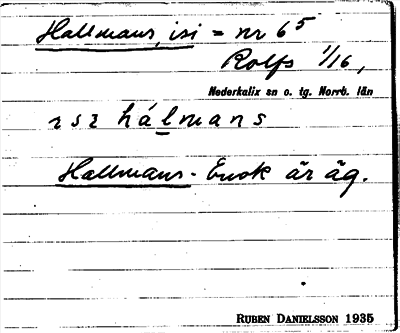 Hallmans, isi = nr 6⁵
Rolfs 1/16,
Nederkalix sn o. tg. Norrb. län
hálmans
Hallmans - Enok är äg.
RUBEN DANIELSSON 1935